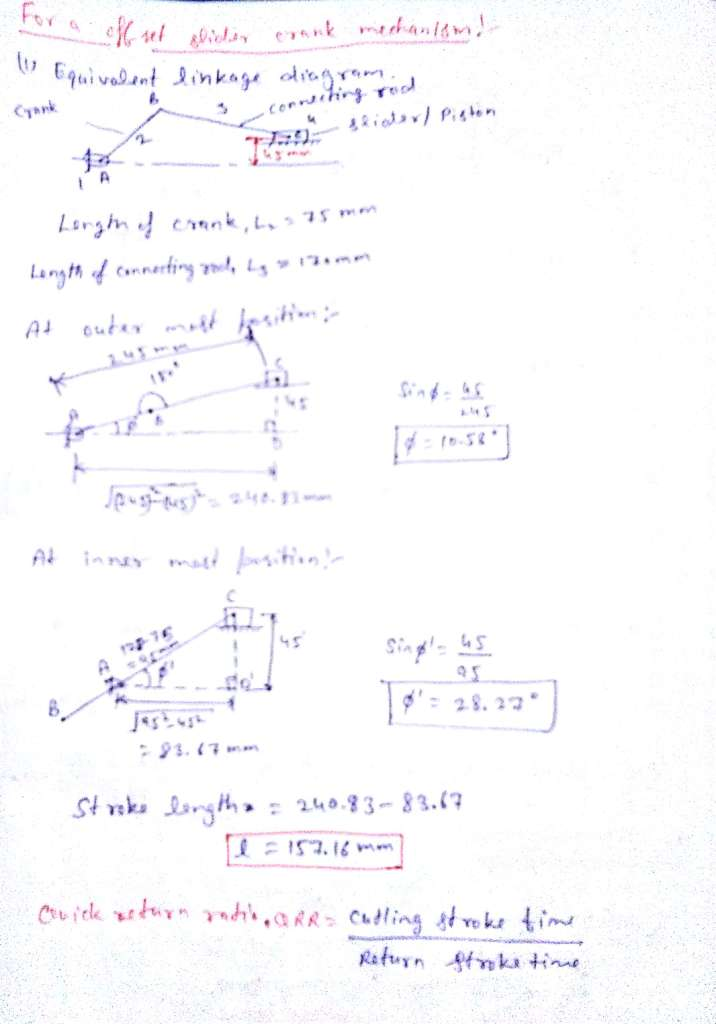 For a offset slider crank mechanism:-
(1) Equivalent linkage diagram.
Crank B 3 connecting rod
2 4 slider/ Piston
45 mm
1 A
Length of crank, L₂ = 75 mm
Length of connecting rod, L₃ = 170mm
At outer most position:-
245 mm
180° C
A φ B 45
D
Sinφ = 45/245
φ = 10.58°
√(245)²-(45)² = 240.83 mm
At inner most position:-
C
170-75
= 95mm 45
A φ' D'
B
√95²-45²
= 83.67 mm
Sinφ' = 45/95
φ' = 28.27°
Stroke length = 240.83 - 83.67
l = 157.16 mm
Quick return ratio, QRR = Cutting stroke time
Return stroke time